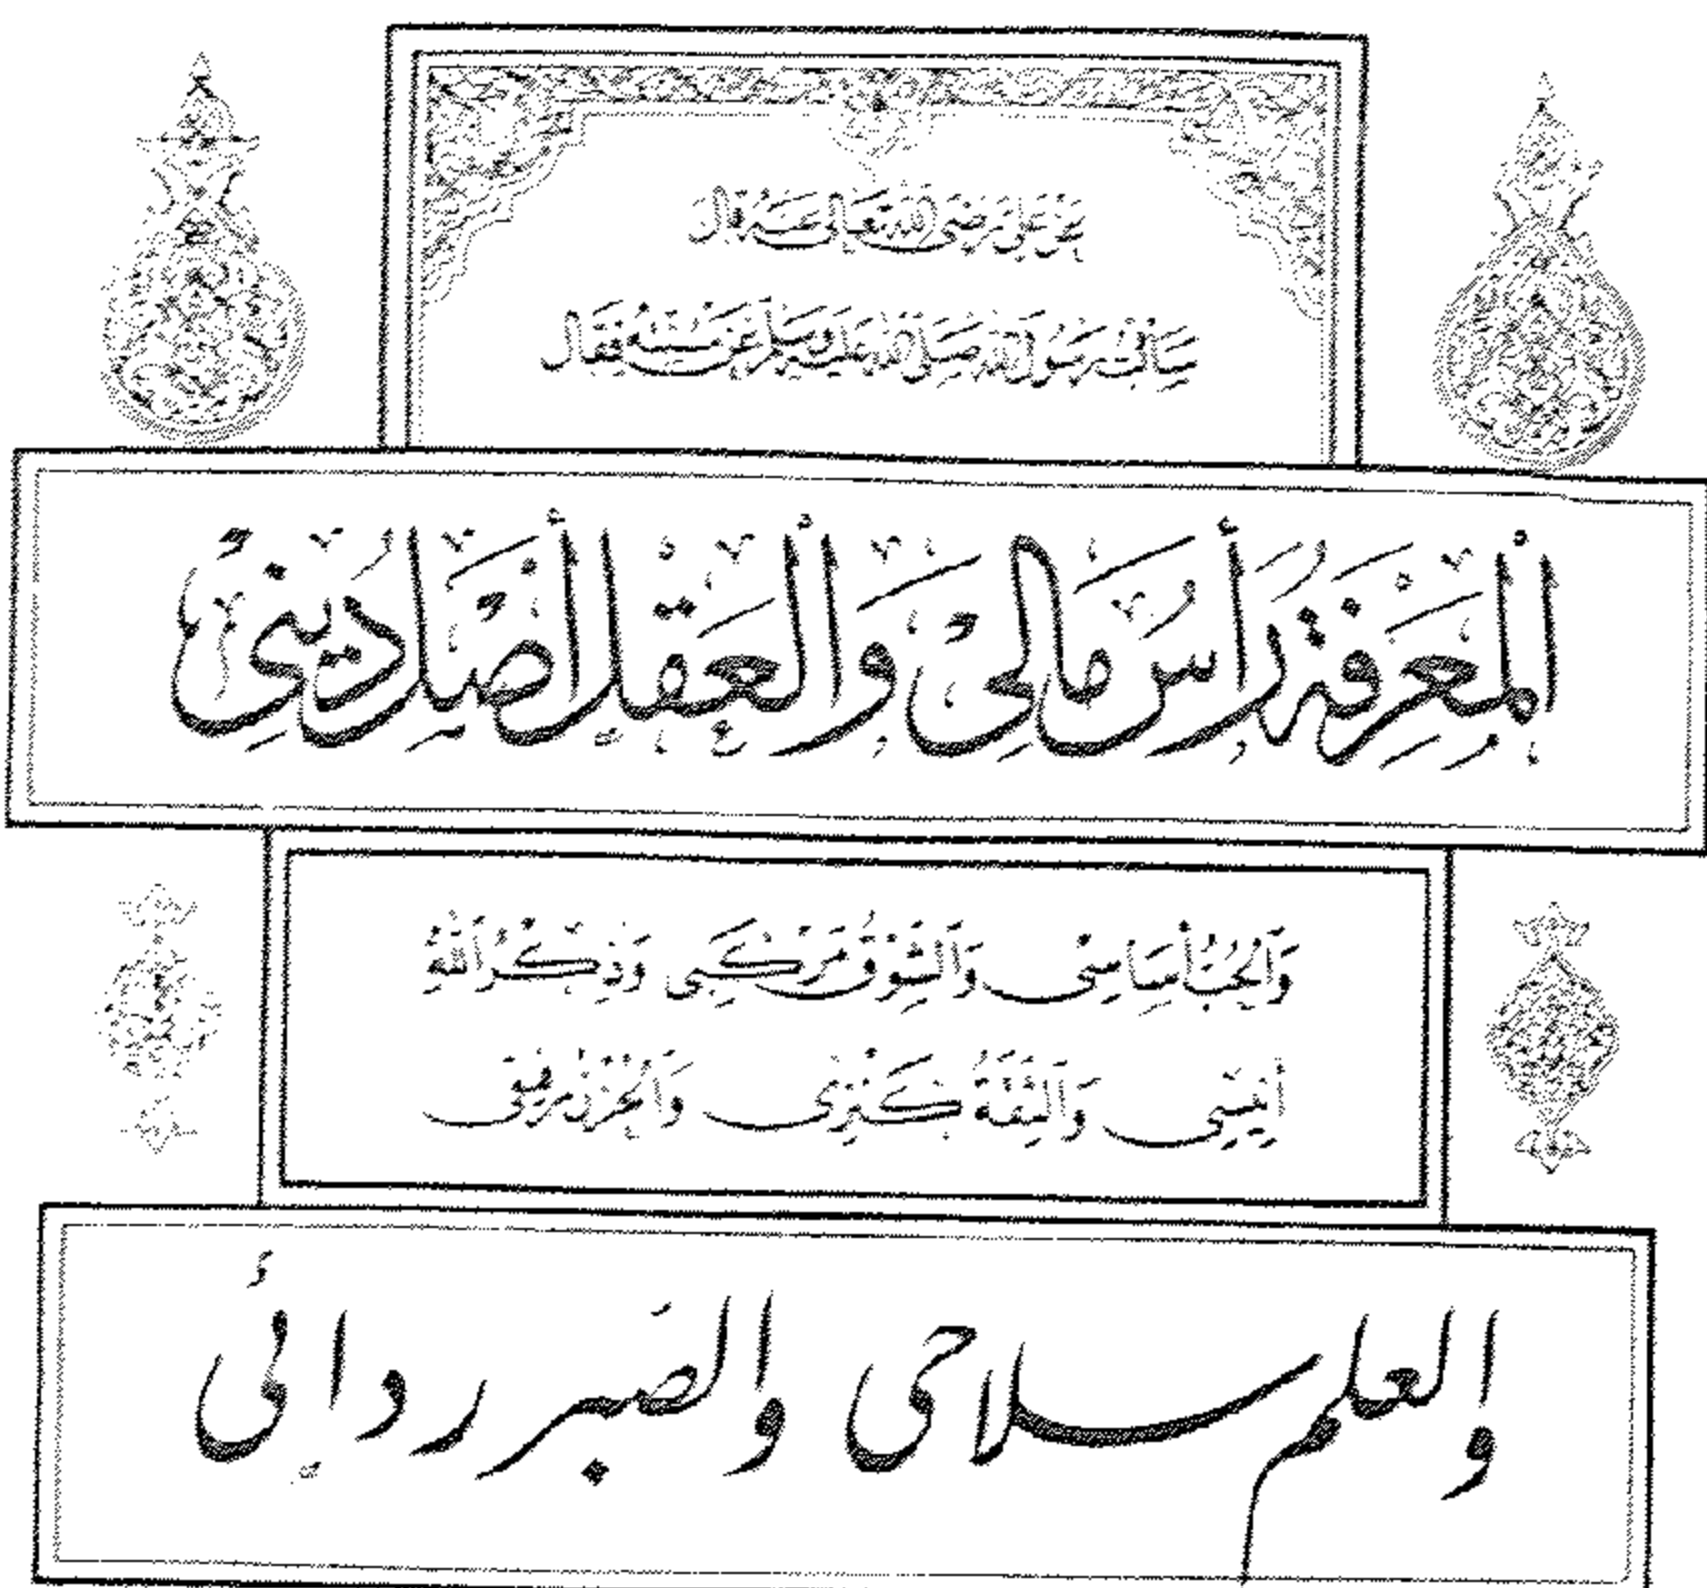 عَنْ عَلِيٍّ رَضِيَ اللهُ تَعَالَى عَنْهُ قَالَ
سَأَلْتُ رَسُولَ اللهِ صَلَّى اللهُ عَلَيْهِ وَسَلَّمَ عَنْ سُنَّتِهِ فَقَالَ
اَلْمَعْرِفَةُ رَأْسُ مَالِي وَالْعَقْلُ أَصْلُ دِينِي
وَالْحُبُّ أَسَاسِي وَالشَّوْقُ مَرْكَبِي وَذِكْرُ اللهِ
أَنِيسِي وَالثِّقَةُ كَنْزِي وَالْحُزْنُ رَفِيقِي
والعلم سلاحی والصَبر ردائی